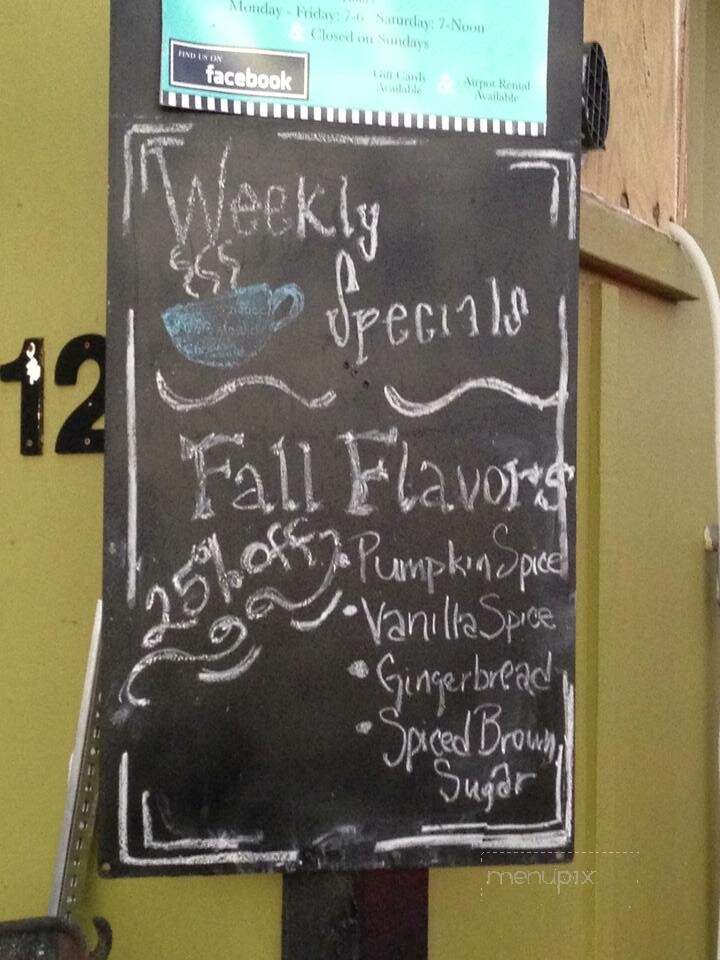 Monday - Friday: 7-6 Saturday: 7-Noon
& Closed on Sundays
FIND US ON
facebook
Gift Cards
Available
&
Airpot Rental
Available
Weekly
Specials
12
Fall Flavors
25% off
• Pumpkin Spice
• Vanilla Spice
• Gingerbread
• Spiced Brown
Sugar
menupix